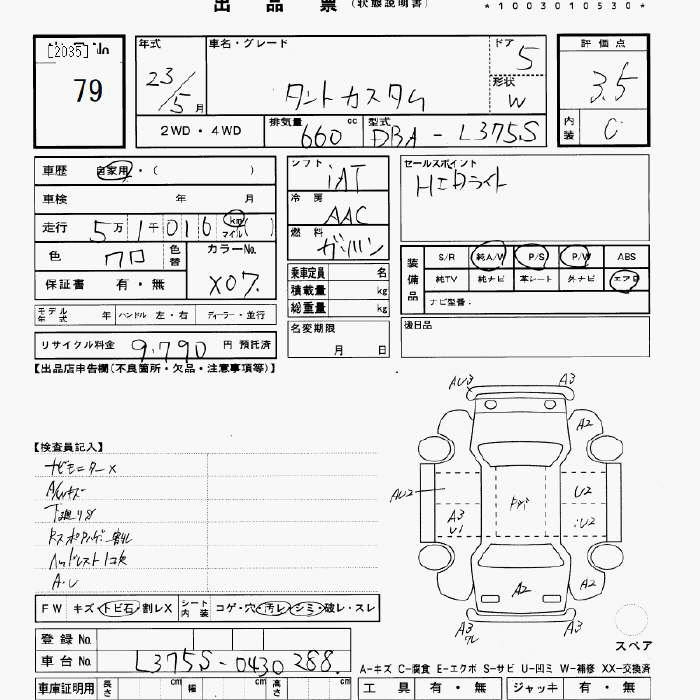 出品票（状態説明書） *1003010530*
[2035]
79
年式 23/5月
車名・グレード タントカスタム
ドア 5
形状 W
評価点 3.5
内装 C
2WD・4WD
排気量 660 cc
型式 DBA-L375S
車歴 自家用・（ ）
車検 年 月
走行 5万1千016 km マイル( )
色 クロ 色替
カラーNo. X07.
保証書 有・無
モデル年式 年 ハンドル 左・右 ディーラー・並行
リサイクル料金 9,790 円 預託済
シフト iAT
冷房 AAC
燃料 ガソリン
乗車定員 名
積載量 kg
総重量 kg
名変期限
月 日
セールスポイント
HIDライト
装備品
S/R 純A/W P/S P/W ABS
純TV 純ナビ 革シート 外ナビ エアB
ナビ型番：
後日品
【出品店申告欄(不良箇所・欠品・注意事項等)】
【検査員記入】
ナビモニターX
下廻りサビ
ヘッドレスト1コ欠
A・U
AU3 A3
A2
AU2
A3
U1
U2
U2
A2
A2
A3
A3
スペア
FW キズ・トビ石・割レX シート内装 コゲ・穴・汚レ・シミ・破レ・スレ
登録No.
車台No. L375S-0430288.
A-キズ C-腐食 E-エクボ S-サビ U-凹ミ W-補修 XX-交換済
車庫証明用 長さ cm 幅 cm 高さ cm
工具 有・無 ジャッキ 有・無